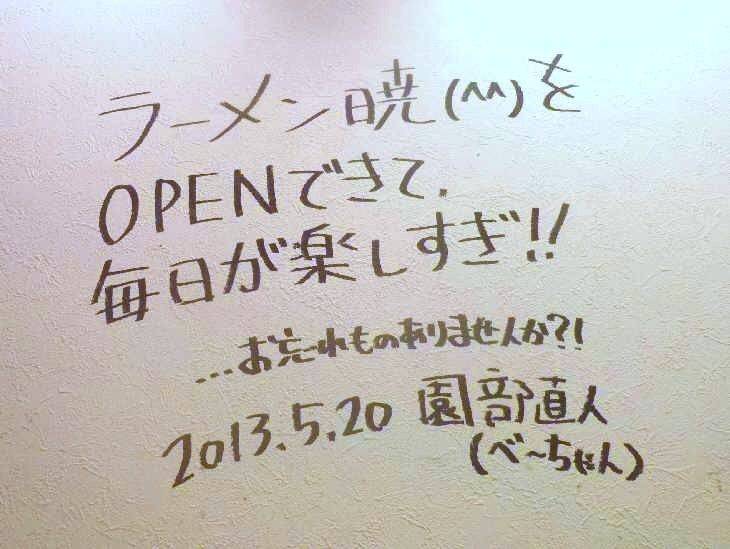 ラーメン暁(^^)を
OPENできて.
毎日が楽しすぎ!!
...お忘れものありませんか?!
2013.5.20 園部直人
(べ〜ちゃん)